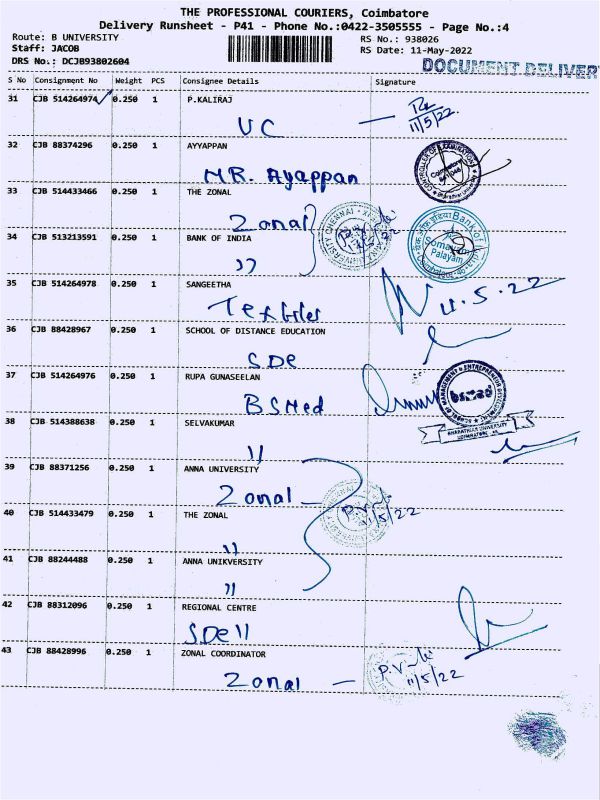 THE PROFESSIONAL COURIERS, Coimbatore
Delivery Runsheet - P41 - Phone No.:0422-3505555 - Page No.:4
Route: B UNIVERSITY
RS No.: 938026
Staff: JACOB
RS Date: 11-May-2022
DRS No.: DCJB93802604
DOCUMENT DELIVER
S No Consignment No Weight PCS Consignee Details Signature
31 CJB 514264974 0.250 1 P.KALIRAJ
UC — 11/5/22
32 CJB 88374296 0.250 1 AYYAPPAN
MR. Ayappan
33 CJB 514433466 0.250 1 THE ZONAL
Zonal
34 CJB 513213591 0.250 1 BANK OF INDIA
Bank of India
Somayam
Palayam
''
35 CJB 514264978 0.250 1 SANGEETHA
Textiles 11.5.22
36 CJB 88428967 0.250 1 SCHOOL OF DISTANCE EDUCATION
SDE
37 CJB 514264976 0.250 1 RUPA GUNASEELAN
BSMed
bsmed
SCHOOL OF MANAGEMENT & ENTREPRENEUR DEVELOPMENT
BHARATHIAR UNIVERSITY
COIMBATORE - 46
38 CJB 514388638 0.250 1 SELVAKUMAR
''
39 CJB 88371256 0.250 1 ANNA UNIVERSITY
Zonal — 11/5/22
40 CJB 514433479 0.250 1 THE ZONAL
''
41 CJB 88244488 0.250 1 ANNA UNIKVERSITY
''
42 CJB 88312096 0.250 1 REGIONAL CENTRE
SDE
43 CJB 88428996 0.250 1 ZONAL COORDINATOR
Zonal — 11/5/22